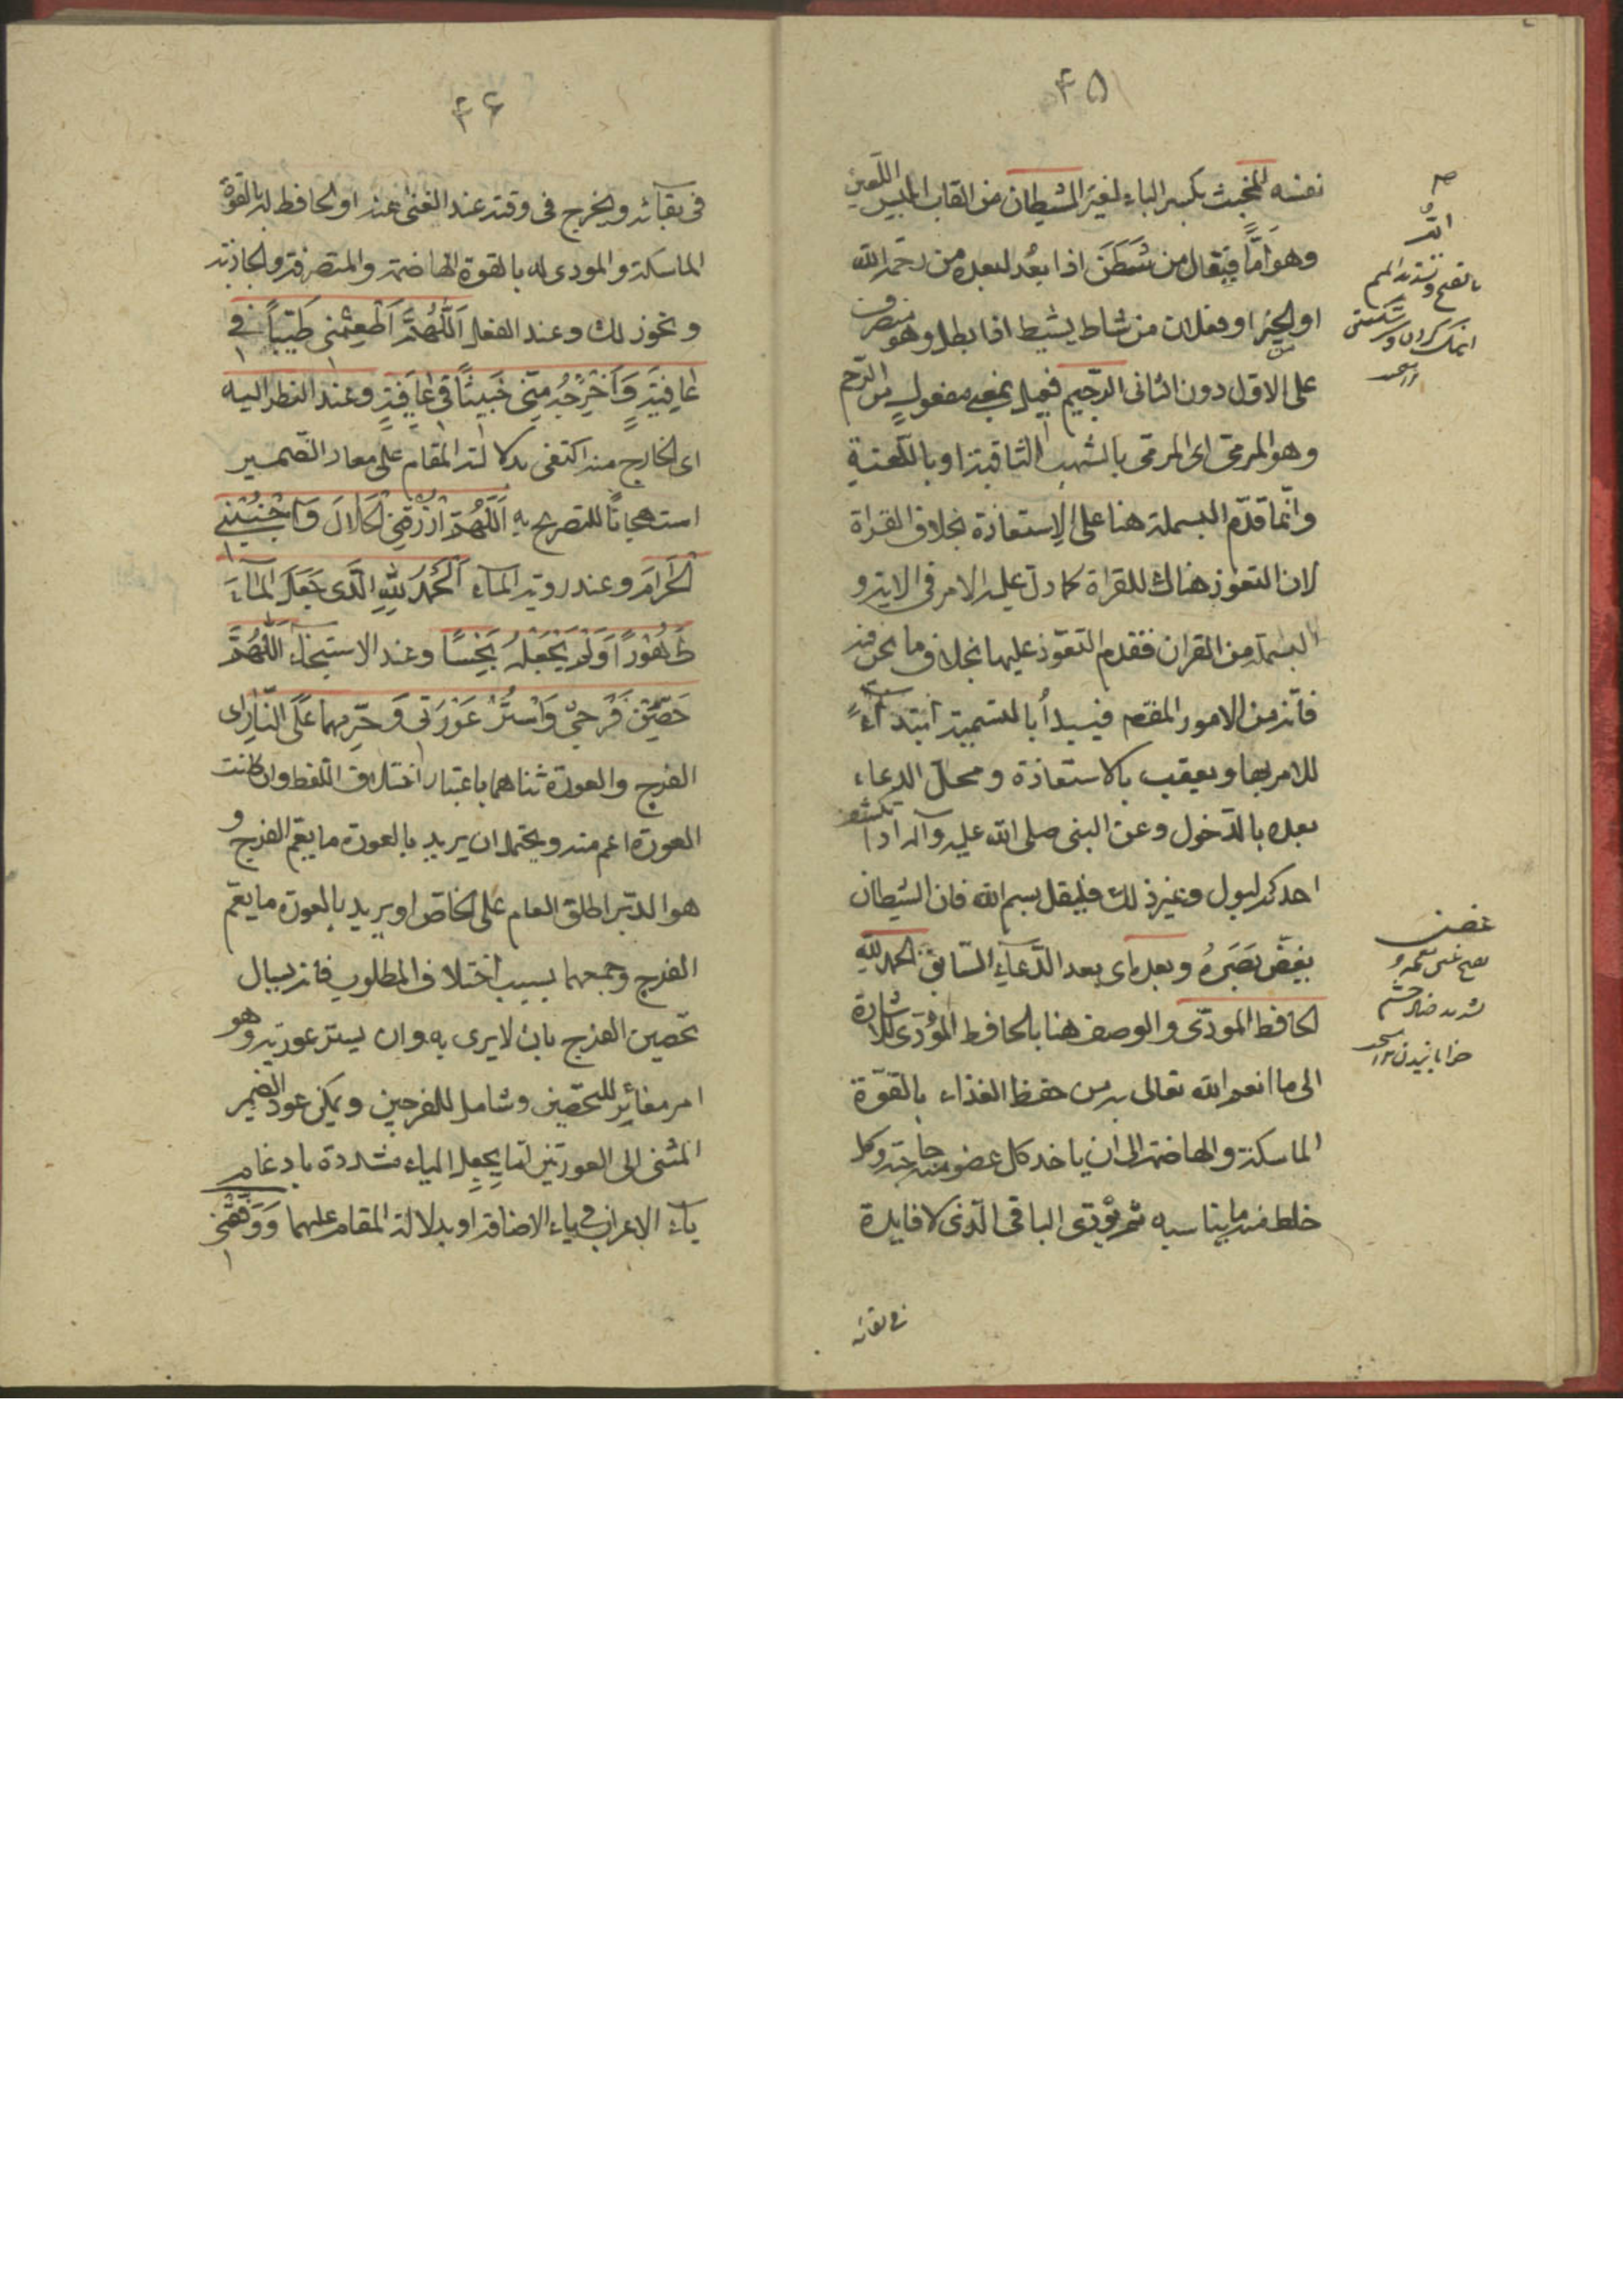 ۴۵
نفسه المخبث بكسر الباء لغيره الشيطان من القاب ابليس اللعين
وهو امّا فيعال من شَطَنَ اذا بعُد لبعده من رحمة الله
او الخير او فعلان من شاط يشيط اذا بطل وهو منصرف
على الاول دون الثانى الرّجيم فعيل بمعنى مفعول من الرّجم
وهو الرمى اى المرمى بالشهب الثاقبة او باللّعنة
وانّما قدّم البسملة هنا على الاستعاذة بخلاف القراة
لان التعوذ هناك للقراة كما دلّ عليه الامر فى الاية و
البسملة من القران فقدم التعوّذ عليها بخلاف ما نحن فيه
فانه من الامور المقدم فيبدأ بالتسمية ابتداءً
للامر بها ويعقب بالاستعاذة ومحل الدعاء
بعده بالدّخول وعن النبى صلى الله عليه وآله اذا انكشف
احدكم لبول وغير ذلك فليقل بسم الله فان الشيطان
يغضّ بَصَرهُ وبعده اى بعد الدّعاء السّابق الحمد للهِ
الحافظ المودّى والوصف هنا بالحافظ المؤدّى للاشارة
الى ما انعم الله تعالى به من حفظ الغذاء بالقوّة
الماسكة والهاضمة الى ان ياخذ كل عضو منه حاجته وكل
خلط منه ما يناسبه ثم يؤدّى الباقى الّذى لا فايدة
فى بقائه
بالفتح وتشديد الميم
غضّ
۴۶
فى بقآئه ويخرج فى وقته عند الغنى عنه او الحافظ له بالقوة
الماسكة والمودى له بالقوة الهاضمة والمتصرفة والجاذبة
ونحو ذلك وعند الفعل اَللّهُمَّ اَطْعِمْنى طَيّباً فى
عافِيَةٍ وَاَخْرِجْهُ مِنّى خَبيثاً فى عافِيَةٍ وعند النظر اليه
اى الخارج منه اكتفى بدلالة المقام على معاد الضّمير
استهجانًا للتصريح به اَللّهُمَّ ارْزُقْنِى الْحَلالَ وَاجْنُبْنِى
الْحَرامَ وعند روية المآء اَلْحَمْدُ للهِ الَّذى جَعَلَ المآءَ
طَهُوْراً وَلَمْ يَجْعَلْهُ نَجِسًا وعند الاستنجآء اَللّهُمَّ
حَصِّنْ فَرْجىْ وَاسْتُرْ عَوْرَتى وَحَرِّمهما عَلَى النّارِ اى
الفرج والعورة ثناهما باعتبار اختلاف اللفظ وان كانت
العورة اعم منه ويحتمل ان يريد بالعورة ما يعم الفرج و
هو الدبر اطلق العام على الخاصّ او يريد بالعورة ما يعمّ
الفرج وجمعهما بسبب اختلاف المطلوب فانه يسال
تحصين الفرج بان لا يرى به وان يستر عورته وهو
امر مغائر للتحصّين وشامل للفرجين ويمكن عود الضمير
المثنى الى العورتين امّا بجعل الياء مشددة بادغام
ياء الاعراب فى ياء الاضافة او بدلالة المقام عليهما وَوَفِّقْنى